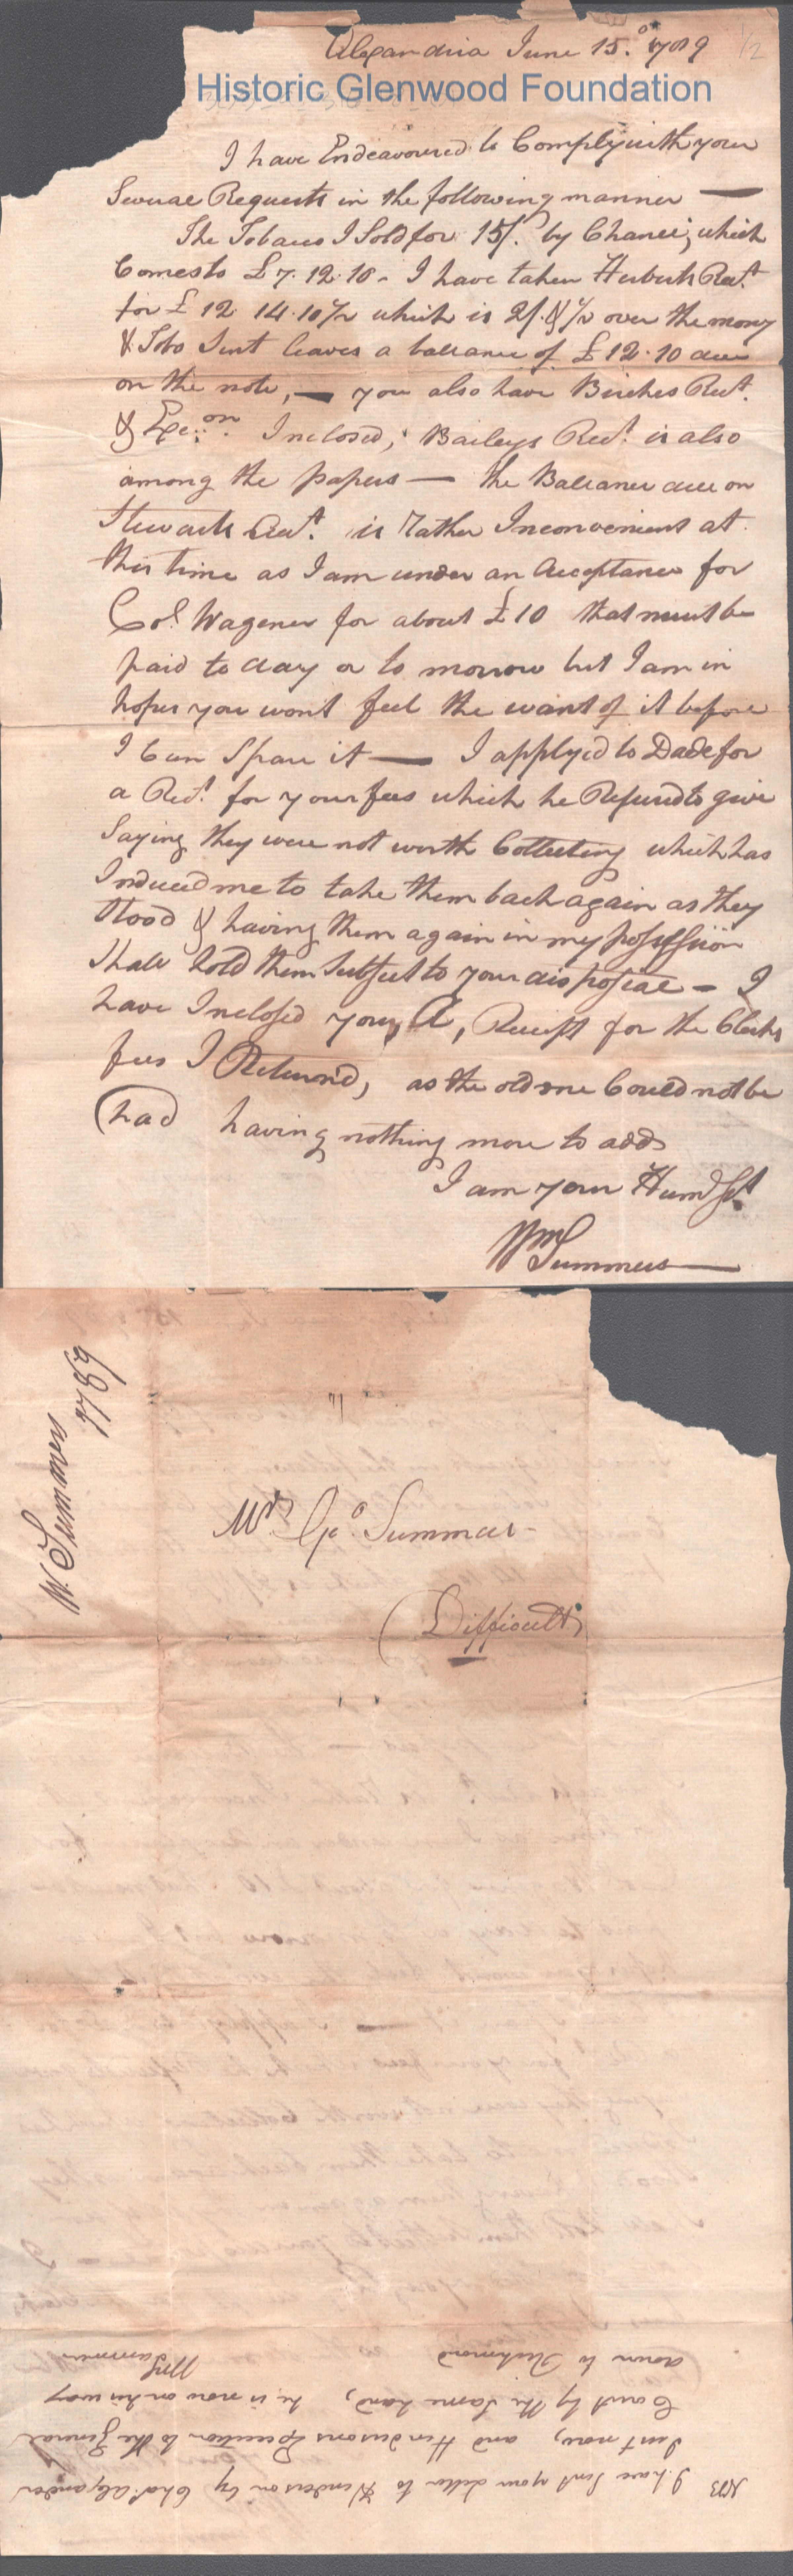 Alexandria June 15.º 1789
1/2
Historic Glenwood Foundation
I have Endeavoured to Comply with your
Several Requests in the following manner —
The Tobacco I Sold for 15/. by Chance, which
Comes to £7.12.10 - I have taken Herberts Rect.
for £12.14.10½ which is 2/. over the money
& Tobo Sent leaves a ballance of £12.10 due
on the note, — you also have Birches Rect.
& Exe:on. Inclosed, Baileys Rect. is also
among the papers — the Ballance due on
Stewarts is rather Inconvenient at
this time as I am under an Acceptance for
Col. Wagener for about £10 that must be
paid to day or to morrow but I am in
hopes you wont feel the want of it before
I Can Spare it — I apply'd to Dade for
a Rect. for your fees which he Refused to give
Saying they were not worth Collecting which has
Induced me to take them back again as they
Stood & having them again in my possession
Shall hold them Subject to your disposeal - I
have Inclosed you, A, Receipt for the Clerks
fees I Return'd, as the old one Could not be
(had having nothing more to add
I am your Humb. St.
Wm Summers
W. Summers
1789
Mr. Geo. Summers -
(Difficult)
NB I have Sent your Letter to Henderson by Chas. Alexander
Just now, and Hendersons Execution to the General
Court by the Same hand, he is now on his way
down to Richmond
Wm Summers